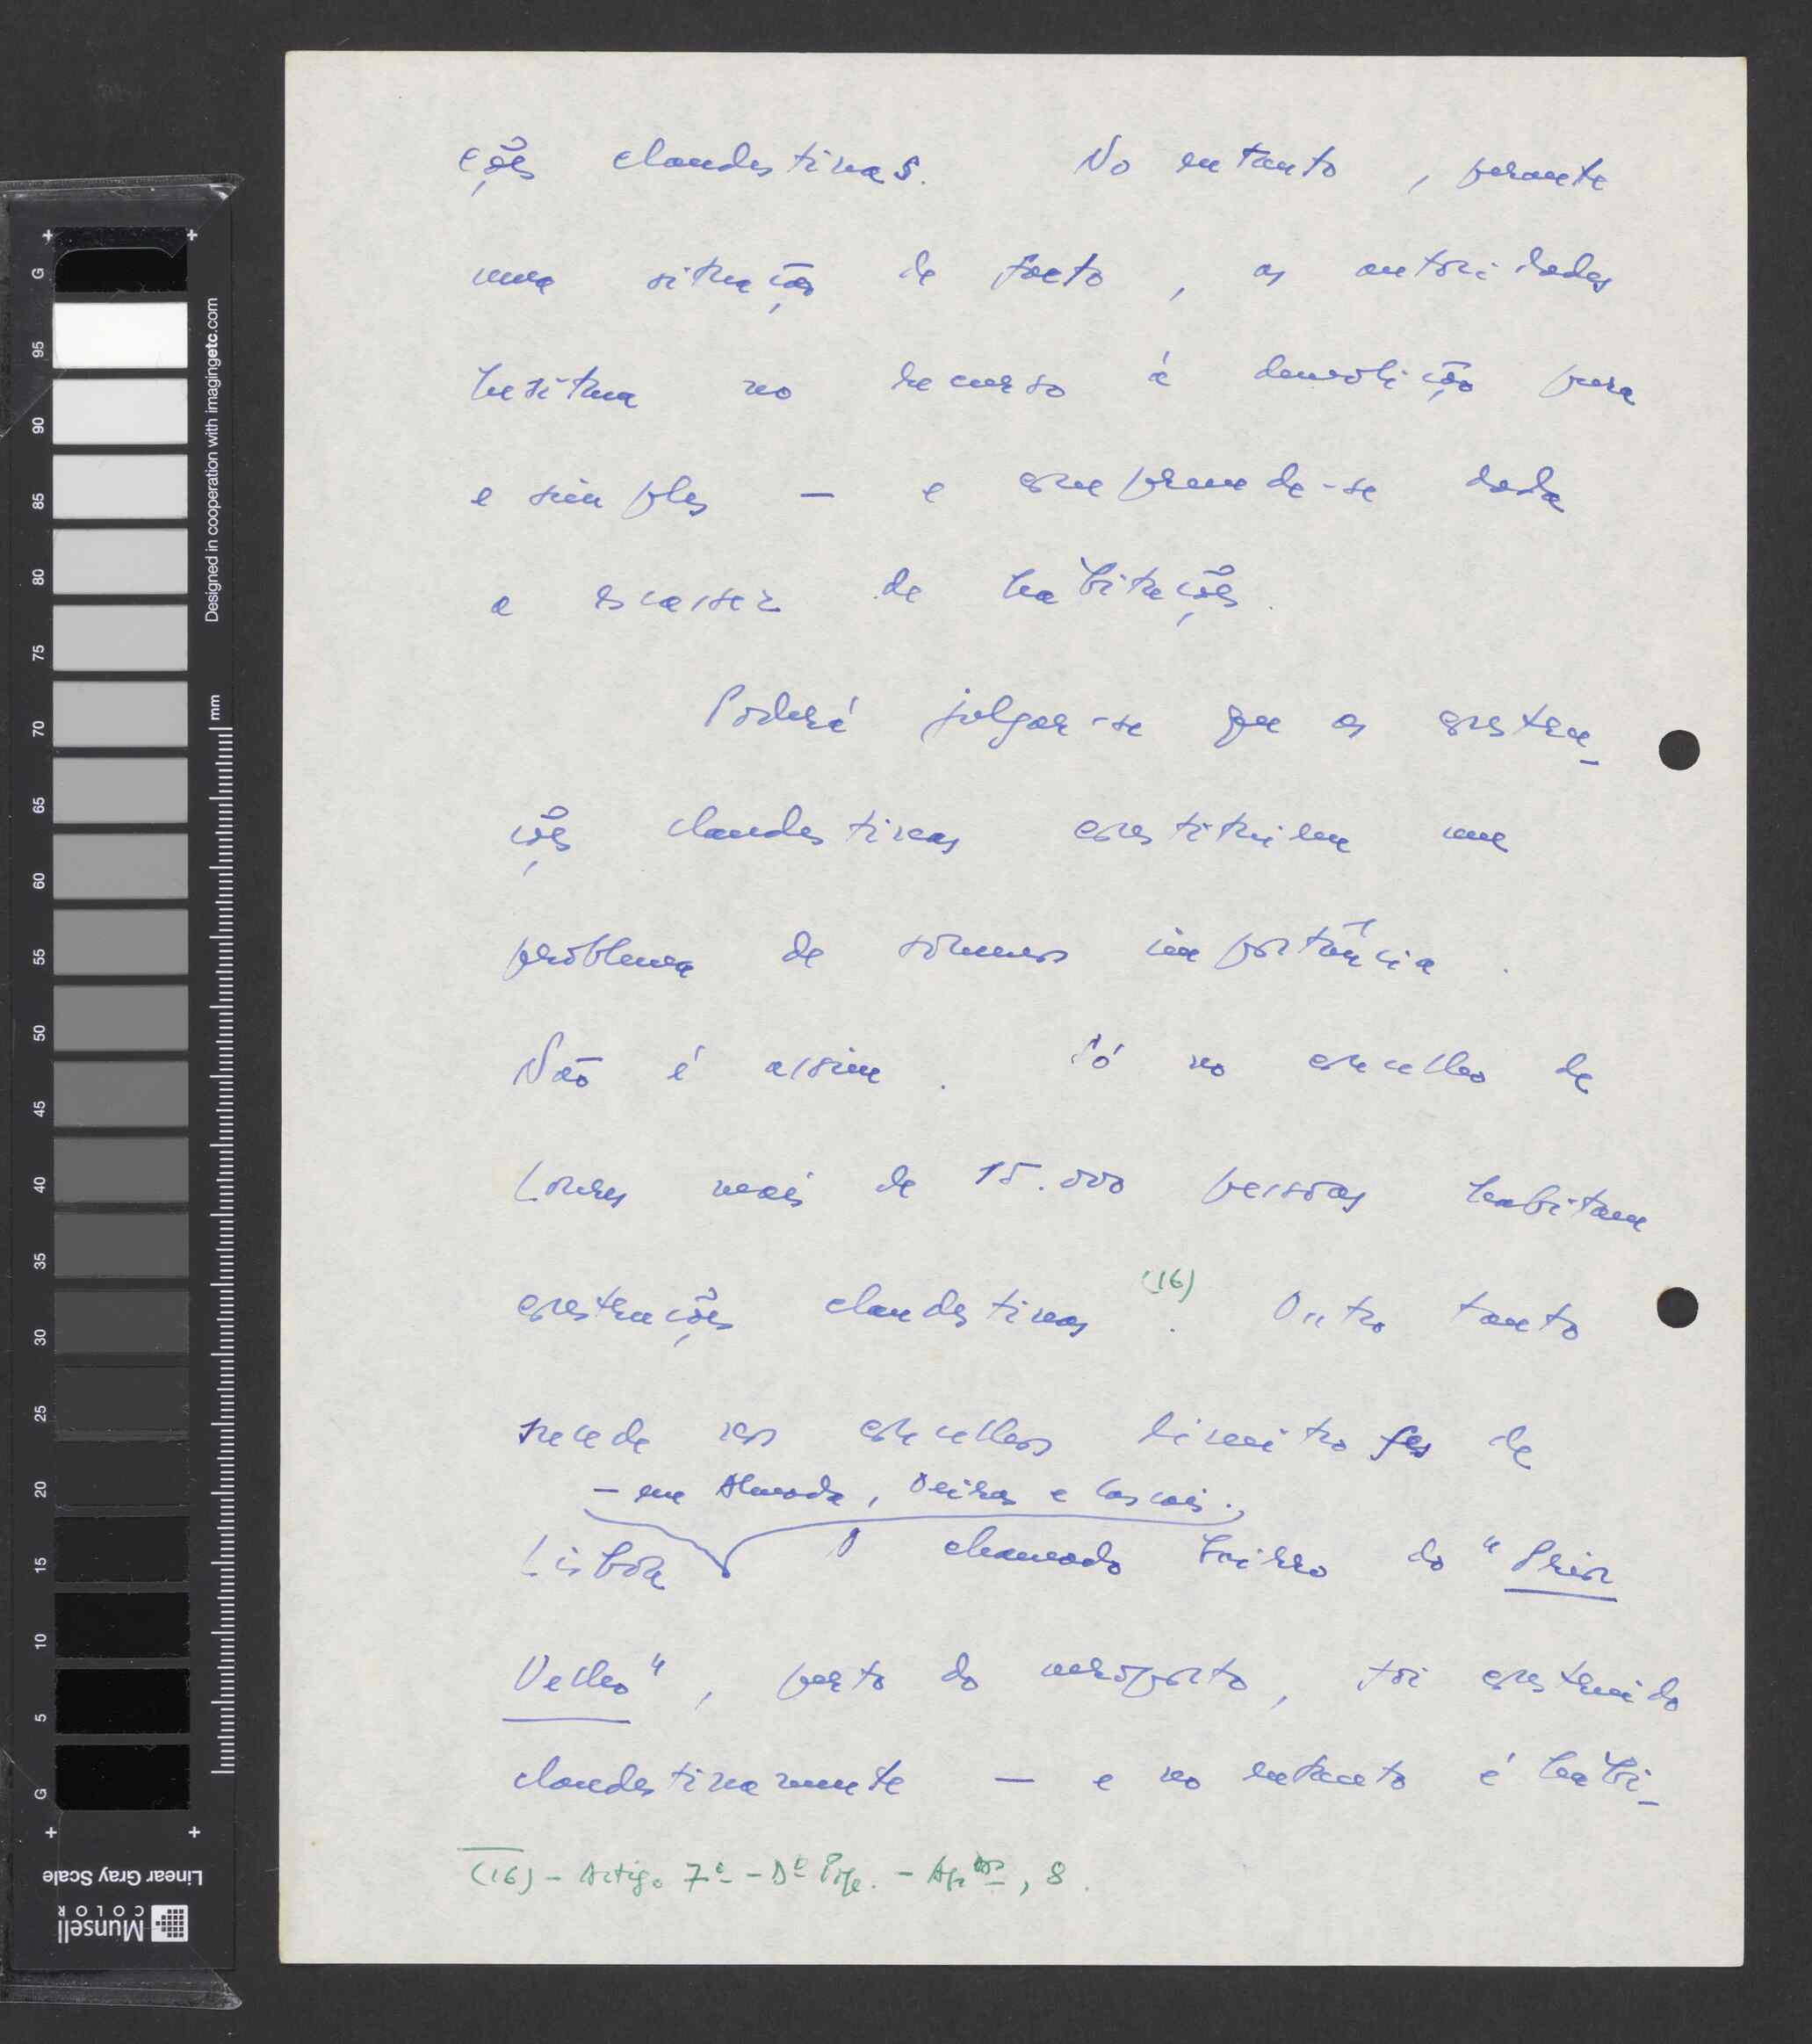 ções clandestinas. No entanto, perante
uma situação de facto, as autoridades
hesitam no recurso à demolição pura
e simples — e compreende-se dada
a escassez de habitações.
Poderá julgar-se que as constru-
ções clandestinas constituem um
problema de somenos importância.
Não é assim. Só no concelho de
Loures mais de 15.000 pessoas habitam
construções clandestinas (16). Outro tanto
sucede nos concelhos limítrofes de
— em Almada, Oeiras e Cascais.
Lisboa O chamado bairro do "Prior
Velho", perto do aeroporto, foi construído
clandestinamente — e no entanto é habi-
(16) - Artigo 7º - Dº , 8.
G
95
90
85
80
75
70
65
60
55
50
45
40
35
30
25
20
15
10
5
G
mm
Designed in cooperation with imagingetc.com
Linear Gray Scale
Munsell
COLOR